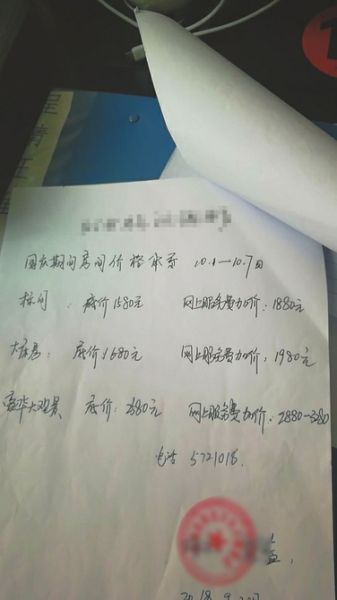 国庆期间房间价格体系 10.1—10.7日
标间 : 底价1580元 网上服务费加价: 1880元
大床房: 底价1680元 网上服务费加价: 1980元
豪华大观景 底价: 2380元 网上服务费加价: 2880-3280
电话 5721018.